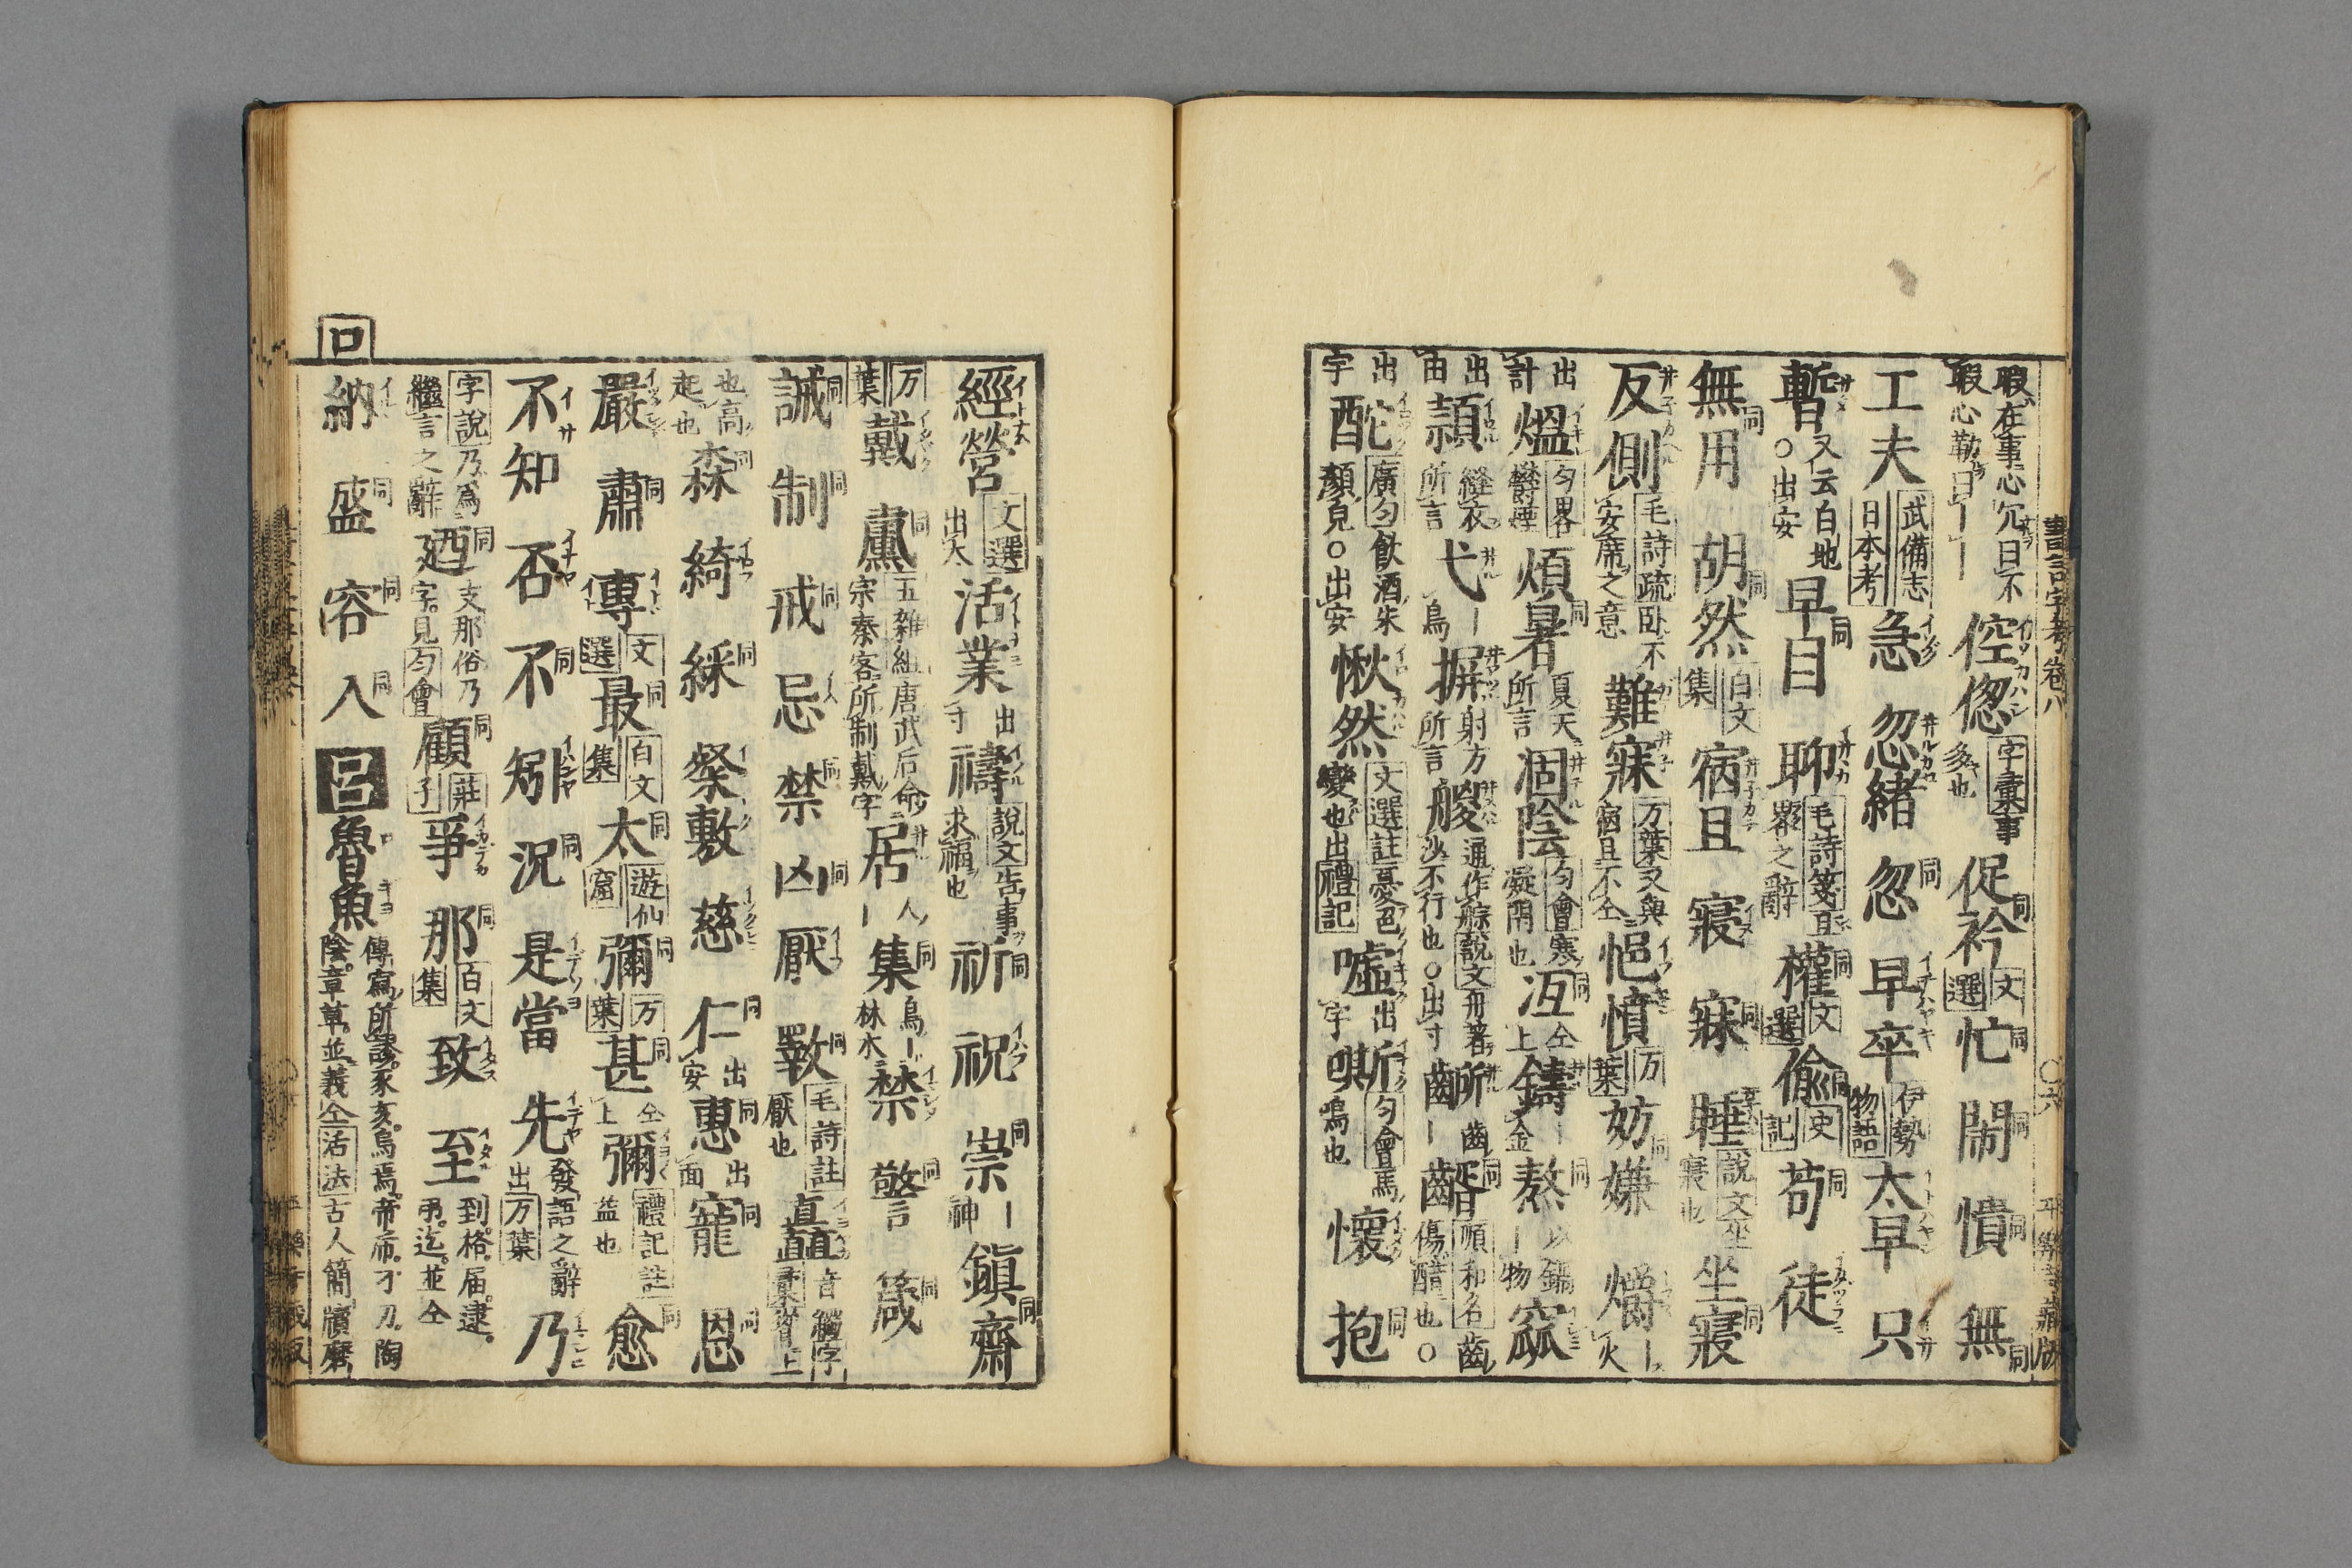 書言字考 卷八 ○六 平樂寺藏版
暇在事心冗日不
暇心勤日｜｜ 倥偬 字彙事多也 促衿 文選 忙 同 閙 同 憒 同 無 同
工夫 武備志 日本考 急 忽緒 忽 同 早卒 伊勢物語 太早 只
暫 又云白地 ○出安 早自 同 聊 毛詩箋且畧之辭 權 同 文選 偷 同 史記 苟 同 徒
無用 同 胡然 同 白文集 宿且 寢 寐 同 睡 說文坐寢也 坐寢 同
反側 毛詩疏臥不安席之意 難寐 万葉又與宿且不仝 悒憤 万葉 妨 嫌 同 爝 ｜火
出計 熅 匀畧欝煙 煩暑 同 夏天所言 涸陰 匀會寒凝閉也 冱 同 仝上 鑄 ｜金 熬 同 以鍋｜物 窳
出由 頴 縫衣所言 弋 ｜鳥 摒 射方所言 艐 通作䑸說文舟著沙不行也○出寸 齭 齒｜ 齰 同 順和名齒傷醋也○
出宇 酡 廣匀飲酒朱顏皃○出安 愀然 文選註憂色變也出禮記 噓 出宇 嘶 匀會馬鳴也 懷 抱 同
經營 文選 出太 活業 出寸 禱 說文告事求福也 祈 同 祝 崇 同 ｜神 鎭齋 同
万葉 戴 䵻 同 五雜組唐武后命宗秦客所制戴字 居 人｜ 集 同 鳥｜林木 禁 警 同 箴 同
誡 同 制 同 戒 同 忌 禁 同 凶 同 厭 斁 同 毛詩註厭也 矗
也高起也 森 同 綺 綵 同 祭 敷 慈 仁 同 出安 惠 同 出面 寵 同 恩 同
嚴 肅 同 傳 文選 最 同 白文集 太 同 遊仙窟 彌 同 万葉 甚 同 仝上 彌 禮記註益也 愈 同
不知 否 不 同 矧 況 同 是當 先 發語之辭出万葉 乃
字說乃爲繼言之辭 廼 同 支那俗乃字見匀會 顧 同 莊子 爭 那 同 白文集 致 至 到格届逮弔迄並仝
口
納 盛 同 容 同 入 同 呂 魯魚 傳寫所謬豕亥烏焉帝帋才刀陶陰章草並義仝活法古人簡牘磨